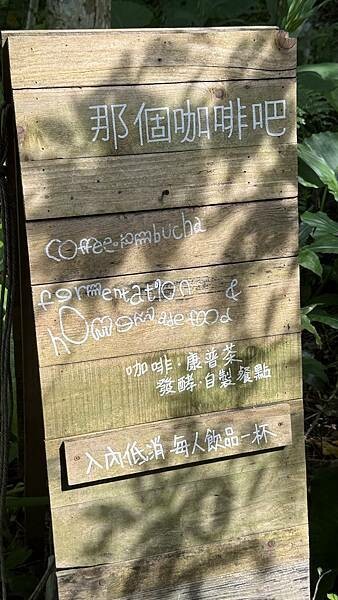 那個咖啡吧
Coffee. Kombucha
fermentation &
homemade food
咖啡·康普茶
發酵·自製餐點
入內低消 每人飲品一杯